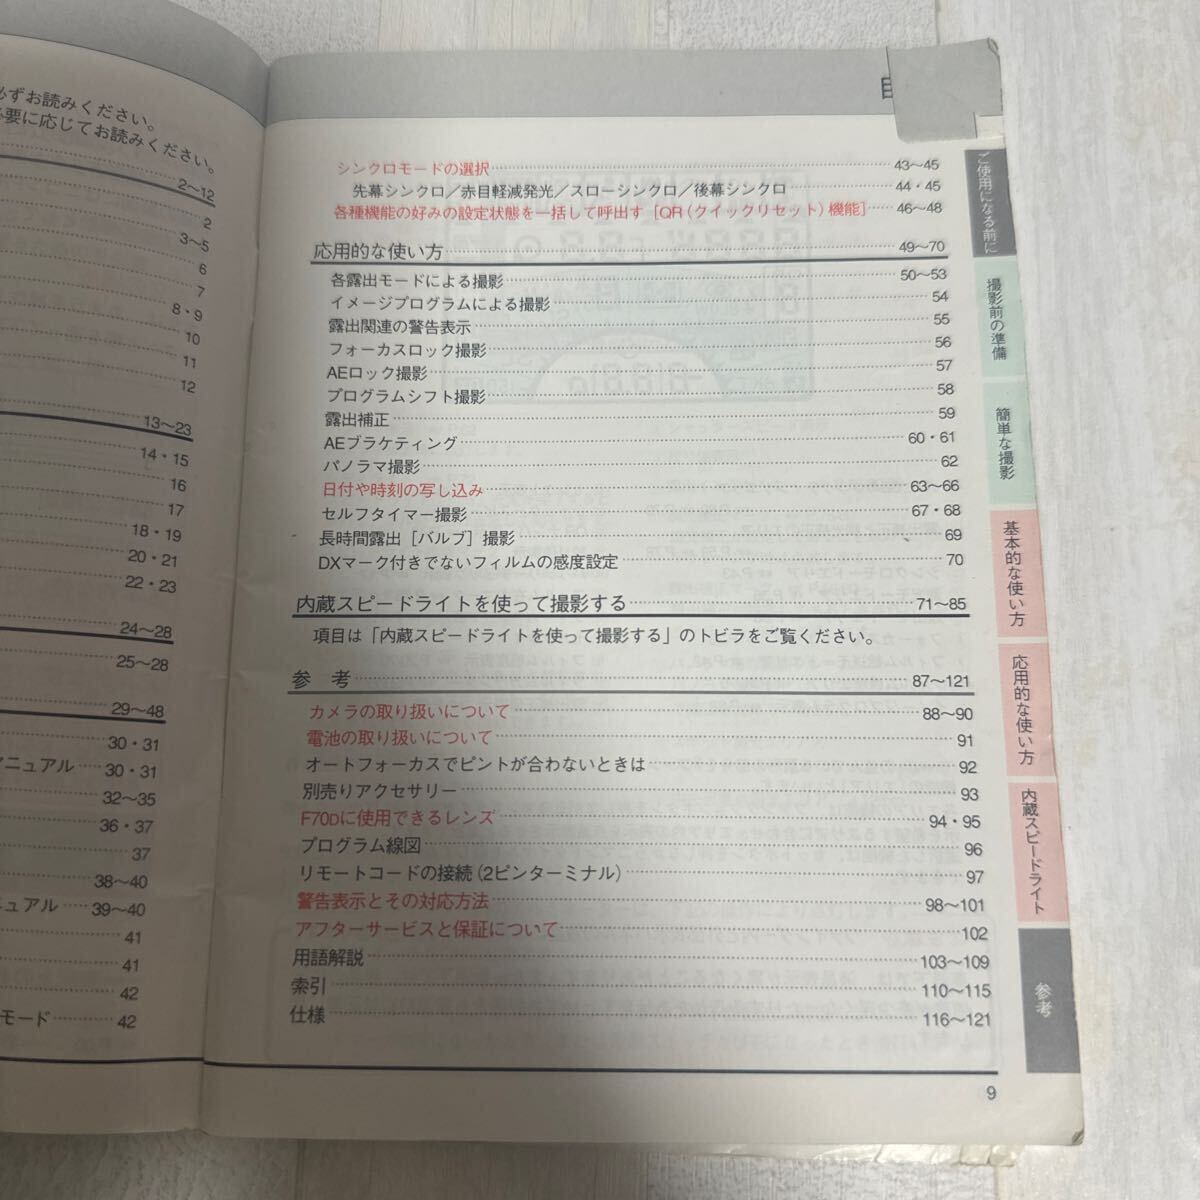 必ずお読みください。
必要に応じてお読みください。
2～12
2
3～5
6
7
8・9
10
11
12
13～23
14・15
16
17
18・19
20・21
22・23
24～28
25～28
29～48
30・31
マニュアル 30・31
32～35
36・37
37
38～40
ニュアル 39～40
41
41
42
モード 42
シンクロモードの選択 43～45
先幕シンクロ／赤目軽減発光／スローシンクロ／後幕シンクロ 44・45
各種機能の好みの設定状態を一括して呼出す［QR（クイックリセット）機能］ 46～48
応用的な使い方 49～70
各露出モードによる撮影 50～53
イメージプログラムによる撮影 54
露出関連の警告表示 55
フォーカスロック撮影 56
AEロック撮影 57
プログラムシフト撮影 58
露出補正 59
AEブラケティング 60・61
パノラマ撮影 62
日付や時刻の写し込み 63～66
セルフタイマー撮影 67・68
長時間露出［バルブ］撮影 69
DXマーク付きでないフィルムの感度設定 70
内蔵スピードライトを使って撮影する 71～85
項目は「内蔵スピードライトを使って撮影する」のトビラをご覧ください。
参　考 87～121
カメラの取り扱いについて 88～90
電池の取り扱いについて 91
オートフォーカスでピントが合わないときは 92
別売りアクセサリー 93
F70Dに使用できるレンズ 94・95
プログラム線図 96
リモートコードの接続（2ピンターミナル） 97
警告表示とその対応方法 98～101
アフターサービスと保証について 102
用語解説 103～109
索引 110～115
仕様 116～121
9
ご使用になる前に
撮影前の準備
簡単な撮影
基本的な使い方
応用的な使い方
内蔵スピードライト
参考